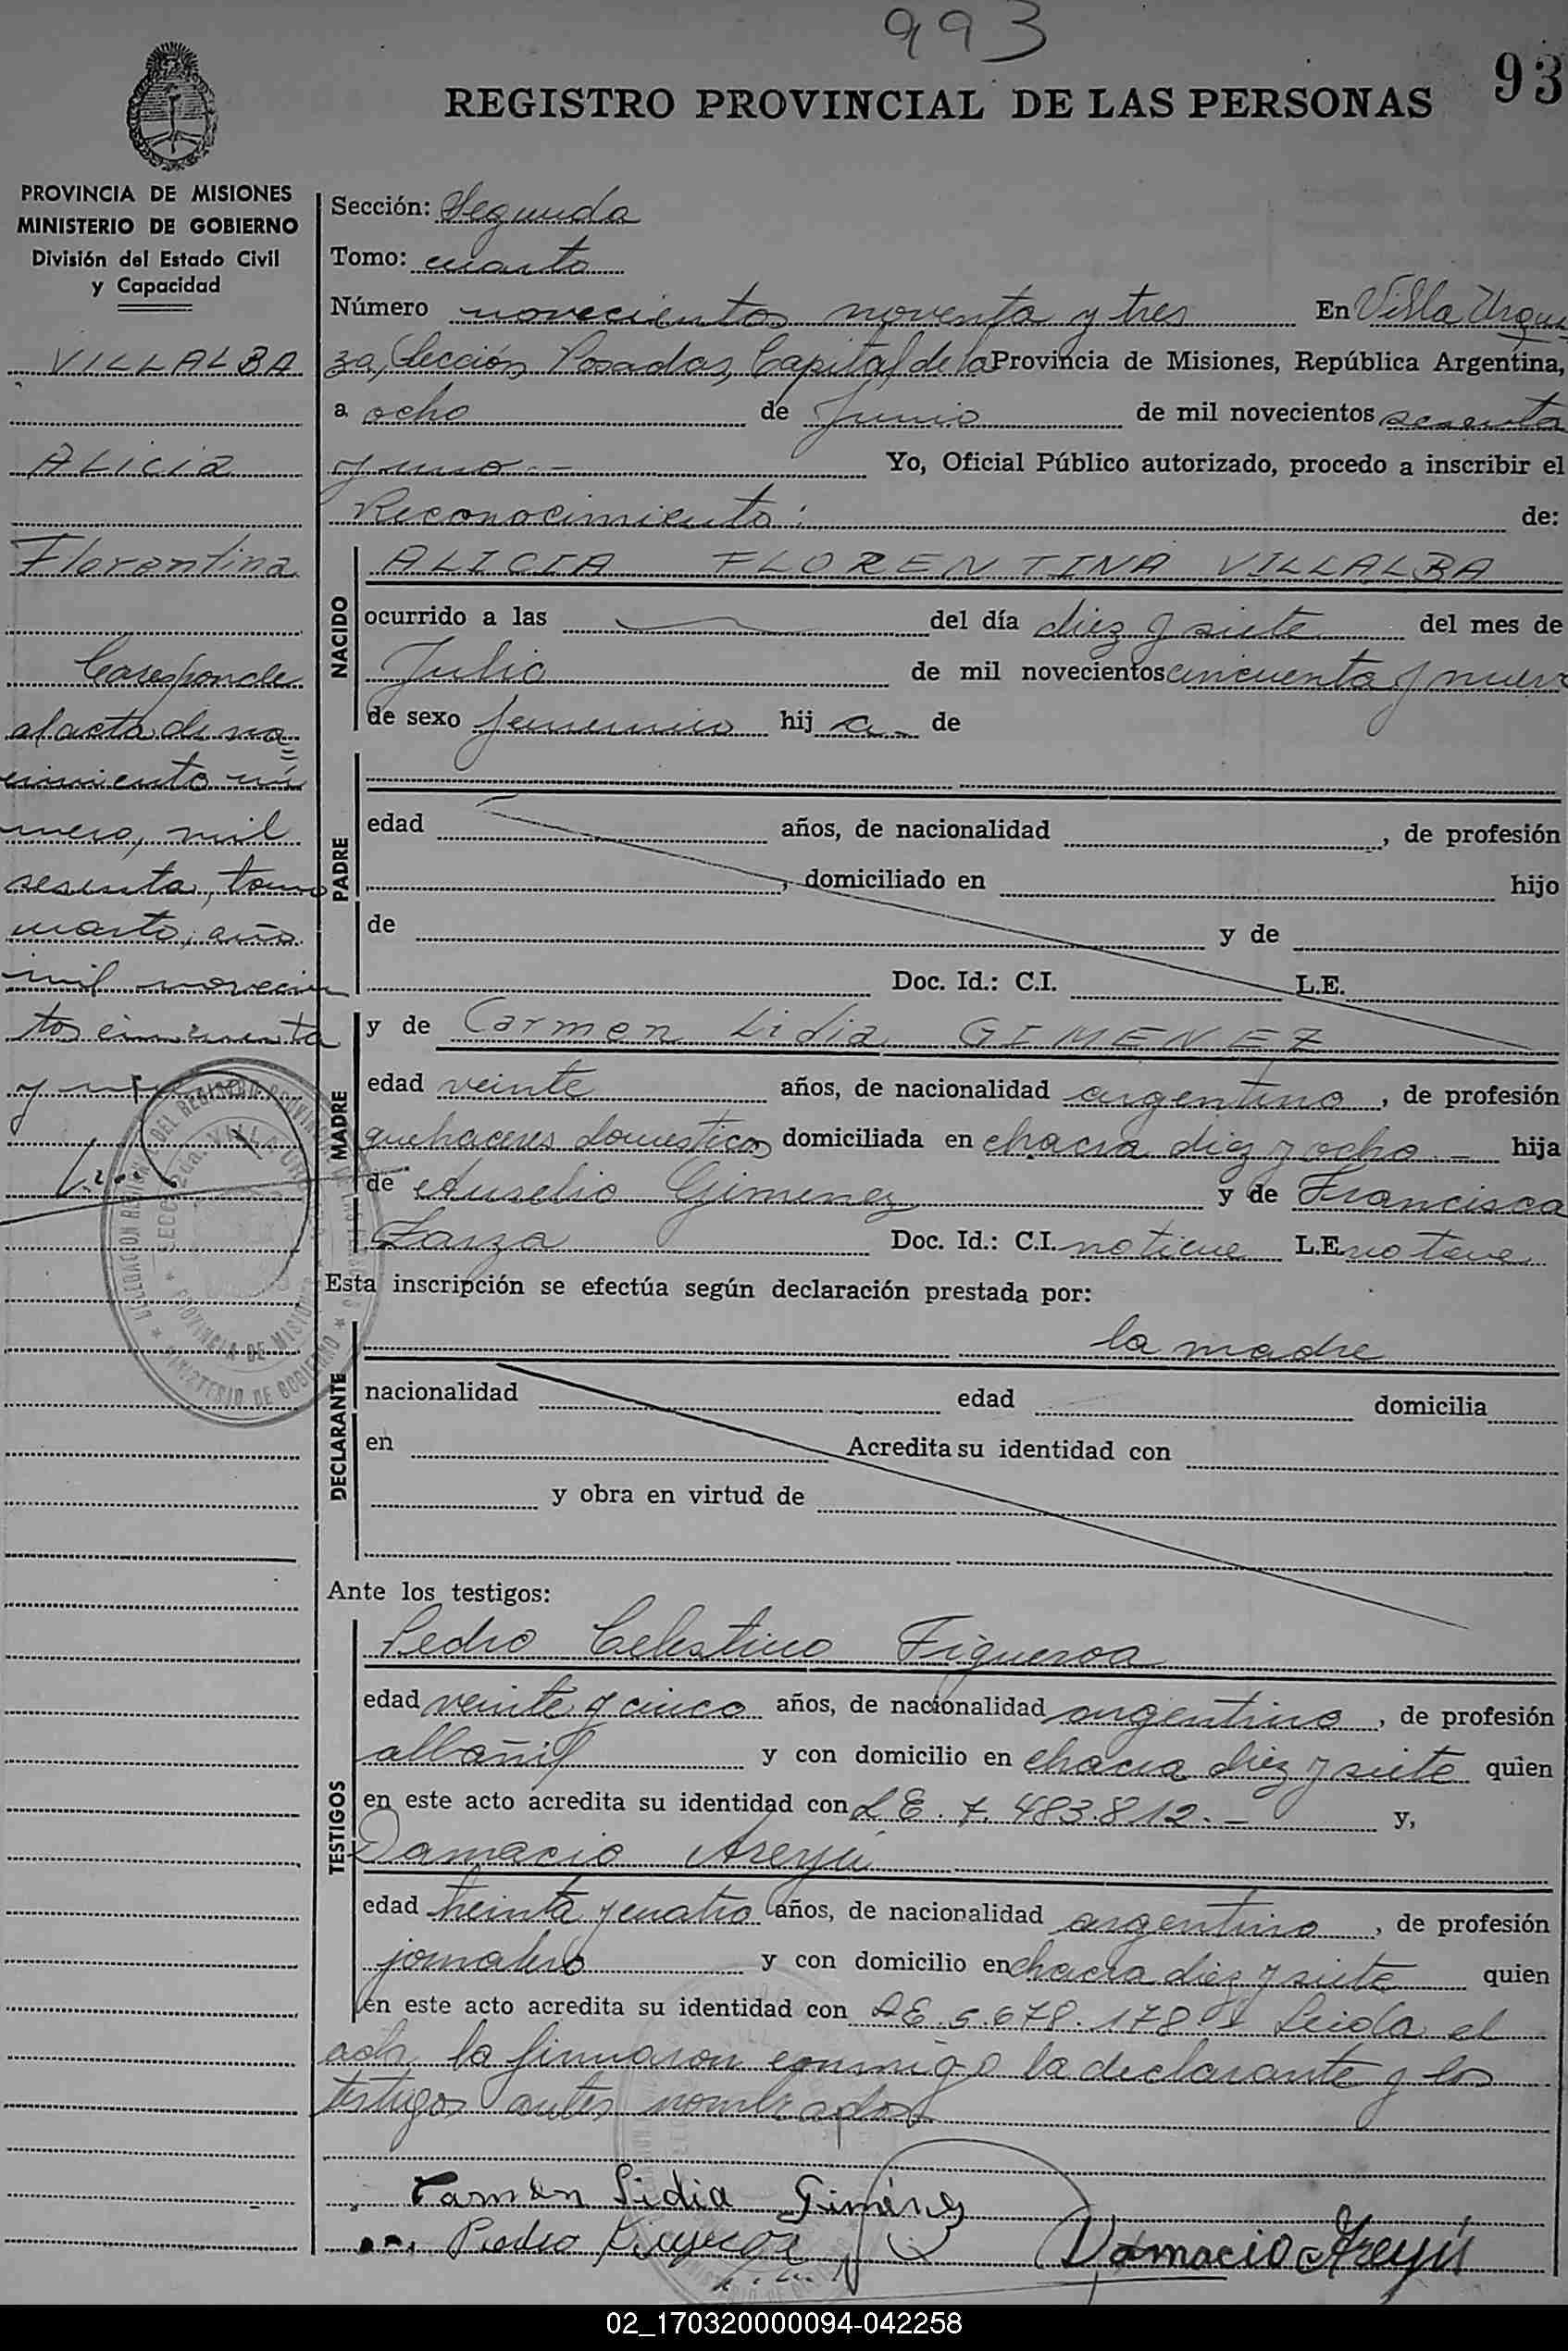 993
93
REGISTRO PROVINCIAL DE LAS PERSONAS
PROVINCIA DE MISIONES
MINISTERIO DE GOBIERNO
División del Estado Civil
y Capacidad
VILLALBA
ALICIA
Florentina
Coresponde
al acta de na=
cimiento nú
mero, mil
sesenta, tomo
cuarto, año
mil novecien
tos cincuenta
y nueve
Sección: Segunda
Tomo: cuarto
Número novecientos noventa y tres En Villa Urqui
za, Sección Posadas, Capital de la Provincia de Misiones, República Argentina,
a ocho de Junio de mil novecientos sesenta
y uno.- Yo, Oficial Público autorizado, procedo a inscribir el
Reconocimiento: de:
NACIDO
ALICIA FLORENTINA VILLALBA
ocurrido a las del día diez y siete del mes de
Julio de mil novecientos cincuenta y nueve
de sexo femenino hij a- de
PADRE
edad años, de nacionalidad , de profesión
, domiciliado en hijo
de y de
Doc. Id.: C.I. L.E.
MADRE
y de Carmen Lidia GIMENEZ
edad veinte años, de nacionalidad argentina, de profesión
quehaceres domesticos domiciliada en chacra diez y ocho.- hija
de Aurelio Gimenez y de Francisca
Zarza Doc. Id.: C.I. no tiene L.E. no tiene
Esta inscripción se efectúa según declaración prestada por:
DECLARANTE
la madre
nacionalidad edad domicilia
en Acredita su identidad con
y obra en virtud de
Ante los testigos:
TESTIGOS
Pedro Celestino Figueroa
edad veinte y cinco años, de nacionalidad argentino, de profesión
albañil y con domicilio en chacra diez y siete quien
en este acto acredita su identidad con L E. 7.483.812.- y,
Damacio Areyú
edad treinta y cuatro años, de nacionalidad argentino, de profesión
jornalero y con domicilio en chacra diez y siete quien
en este acto acredita su identidad con LE. 5.678.178 Leida el
acta la firmaron conmigo la declarante y los
testigos antes nombrados
Carmen Lidia Giménez
Pedro Figueroa
Damacio Areyú
02_170320000094-042258